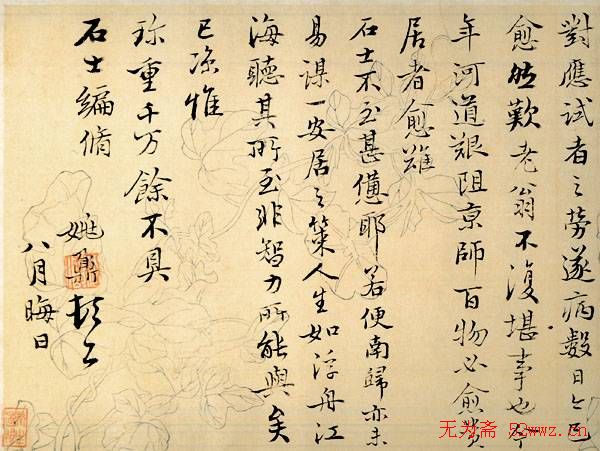 對應試者之勞遂病數日今已
愈然歎老翁不復堪事也今
年河道艱阻京師百物必愈貴
居者愈難
石士不至甚憊耶若便南歸亦未
易謀一安居之策人生如浮舟江
海聽其所至非智力所能與矣
已涼惟
珍重千万餘不具
石士編脩
姚鼐頓首
八月晦日
无为斋 53wwz.cn